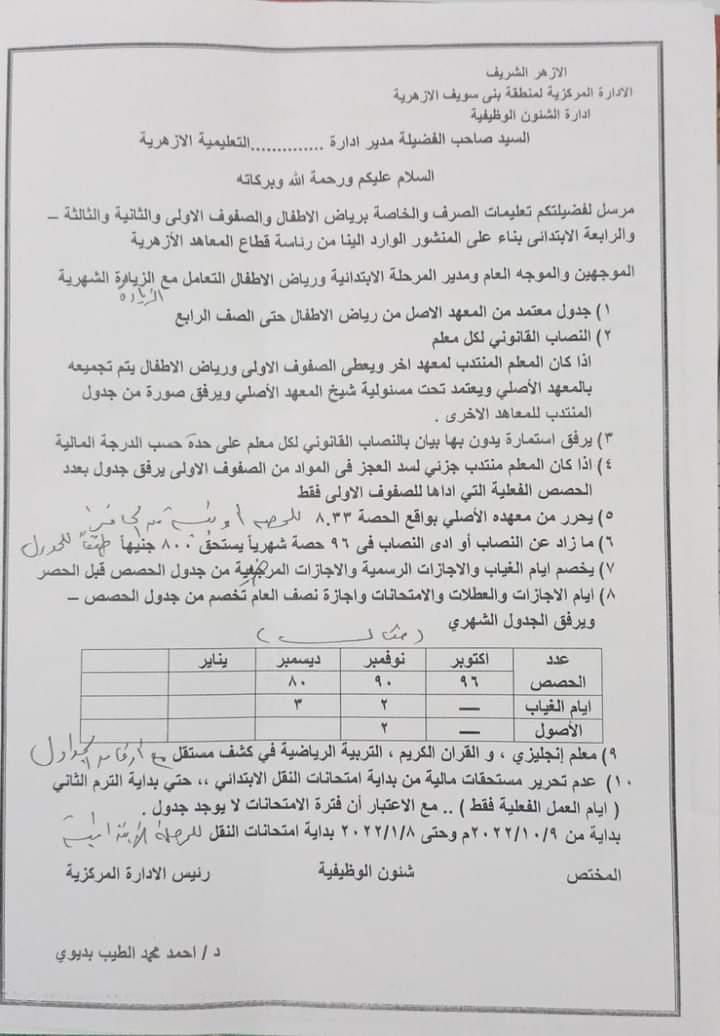 الازهر الشريف
الادارة المركزية لمنطقة بنى سويف الازهرية
ادارة الشئون الوظيفية
السيد صاحب الفضيلة مدير ادارة ..............التعليمية الازهرية
السلام عليكم ورحمة الله وبركاته
مرسل لفضيلتكم تعليمات الصرف والخاصة برياض الاطفال والصفوف الاولى والثانية والثالثة –
والرابعة الابتدائى بناء على المنشور الوارد الينا من رئاسة قطاع المعاهد الأزهرية
الموجهين والموجه العام ومدير المرحلة الابتدائية ورياض الاطفال التعامل مع الزيارة الشهرية
الزيارة
١) جدول معتمد من المعهد الاصل من رياض الاطفال حتى الصف الرابع
٢) النصاب القانوني لكل معلم
اذا كان المعلم المنتدب لمعهد اخر ويعطى الصفوف الاولى ورياض الاطفال يتم تجميعه
بالمعهد الأصلي ويعتمد تحت مسئولية شيخ المعهد الأصلي ويرفق صورة من جدول
المنتدب للمعاهد الاخرى .
٣) يرفق استمارة يدون بها بيان بالنصاب القانوني لكل معلم على حدة حسب الدرجة المالية
٤) اذا كان المعلم منتدب جزئي لسد العجز فى المواد من الصفوف الاولى يرفق جدول بعدد
الحصص الفعلية التي اداها للصفوف الاولى فقط
٥) يحرر من معهده الأصلي بواقع الحصة ٨.٣٣ للحصة
٦) ما زاد عن النصاب أو ادى النصاب فى ٩٦ حصة شهرياً يستحق ٨٠٠ جنيهاً طبقاً للجدول
٧) يخصم ايام الغياب والاجازات الرسمية والاجازات المرضية من جدول الحصص قبل الحصر
٨) ايام الاجازات والعطلات والامتحانات واجازة نصف العام تخصم من جدول الحصص –
ويرفق الجدول الشهري
(مثال)
عدد الحصص اكتوبر نوفمبر ديسمبر يناير
٩٦ ٩٠ ٨٠
ايام الغياب — ٢ ٣
الأصول — ٢
٩) معلم إنجليزي ، و القران الكريم ، التربية الرياضية في كشف مستقل مع ارفاق الجداول
١٠) عدم تحرير مستحقات مالية من بداية امتحانات النقل الابتدائي ،، حتي بداية الترم الثاني
( ايام العمل الفعلية فقط ) .. مع الاعتبار أن فترة الامتحانات لا يوجد جدول .
بداية من ٢٠٢٢/١٠/٩م وحتى ٢٠٢٢/١/٨ بداية امتحانات النقل للمرحلة الابتدائية
المختص شئون الوظيفية رئيس الادارة المركزية
د / احمد محمد الطيب بديوي